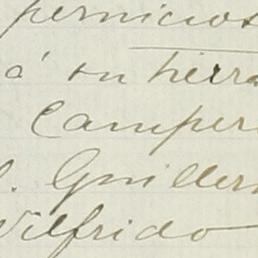 pernicios
á su tierra
Camper
l. Guiller
Wilfrido